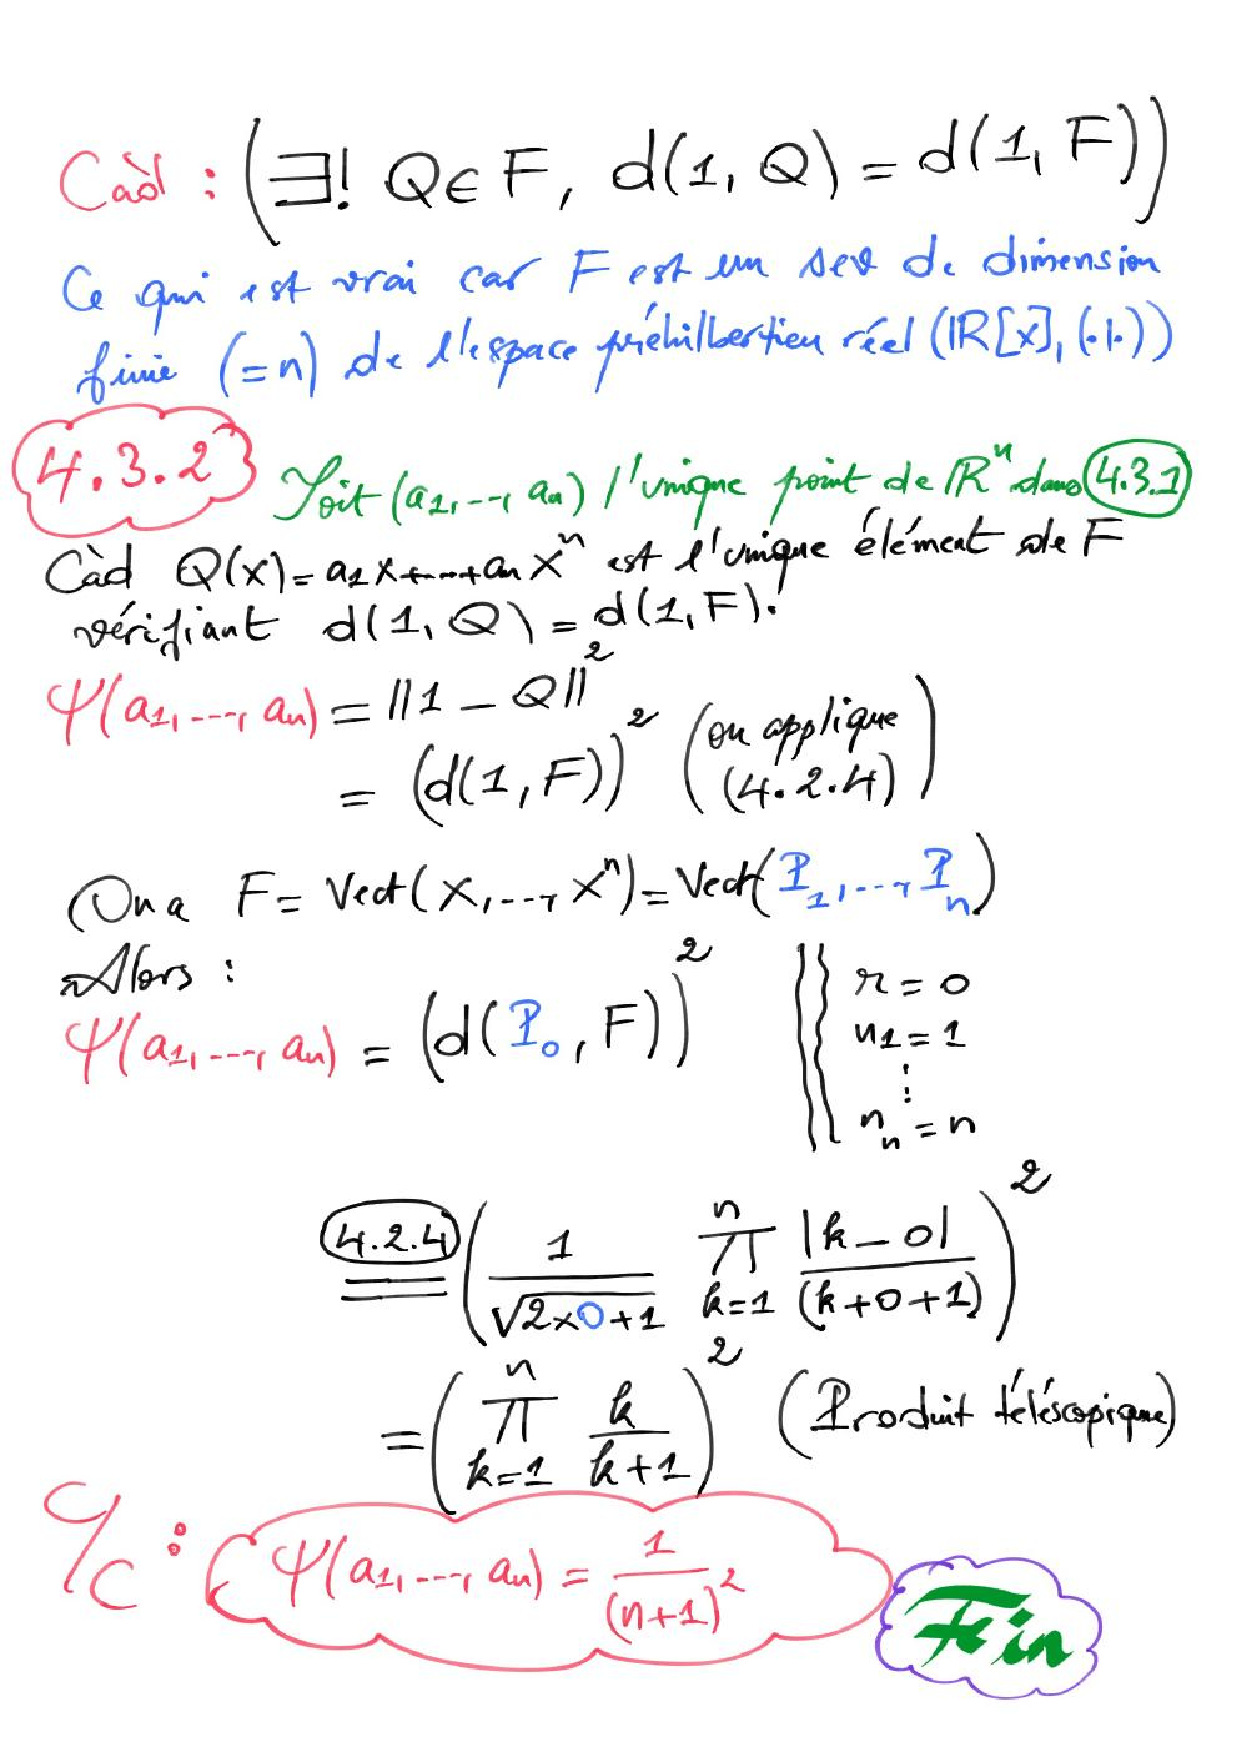 Càd : (∃! Q∈F, d(1, Q) = d(1, F))
Ce qui est vrai car F est un sev de dimension
finie (=n) de l'espace préhilbertien réel (IR[x], (.|.))
4.3.2 Soit (a1, ---, an) l'unique point de IR^n dans 4.3.1
Càd Q(x) = a1x+---+an X^n est l'unique élément de F
vérifiant d(1, Q) = d(1, F).
Ψ(a1, ---, an) = ||1 - Q||²
= (d(1, F))² (on applique (4.2.4))
On a F = Vect(X, ---, X^n) = Vect(P1, ---, Pn)
Alors :
Ψ(a1, ---, an) = (d(P0, F))²
r = 0
n1 = 1
⋮
n_n = n
4.2.4 = (1/√(2×0+1) ∏_{k=1}^{n} |k-0|/(k+0+1))²
= (∏_{k=1}^{n} k/(k+1))² (Produit téléscopique)
C/C : Ψ(a1, ---, an) = 1/(n+1)²
Fin